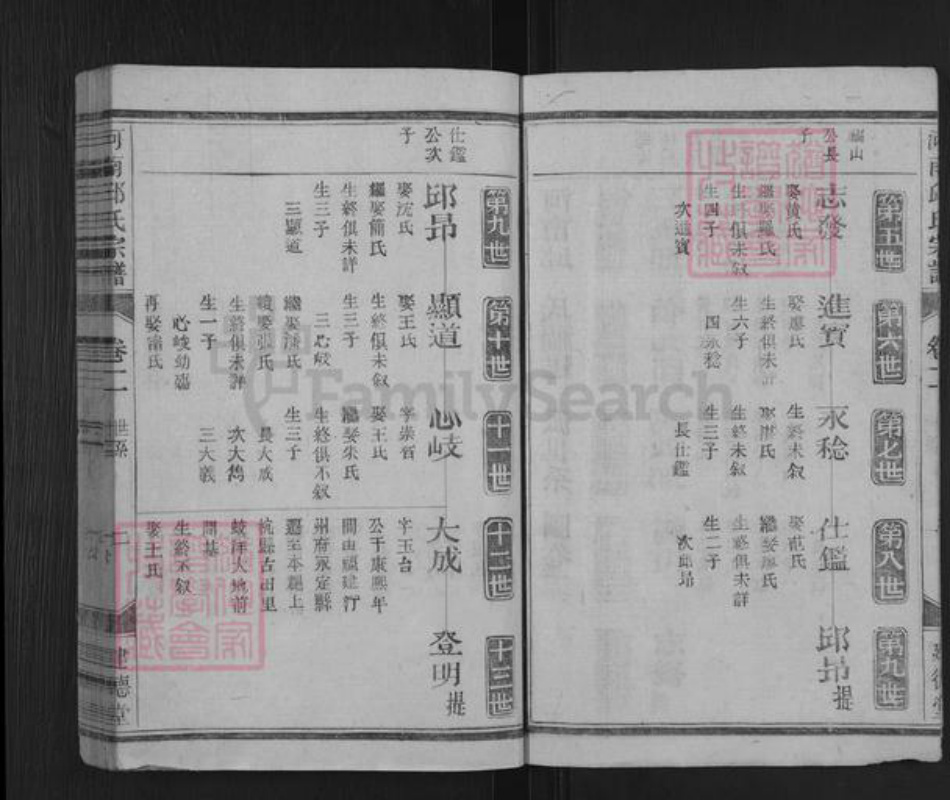 第五世
第六世
第七世
第八世
第九世
公長
子
志發
娶黃氏
繼娶羅氏
生終俱未敘
生四子
次進賓
進賓
娶廖氏
生終俱未詳
生六子
四永稔
永稔
生終未敘
娶湛氏
生終未敘
生三子
長仕鑑
仕鑑
娶范氏
繼娶廖氏
生終俱未詳
生二子
次邱昂
邱昂提
第九世
第十世
十一世
十二世
十三世
仕鑑
公次
子
邱昂
娶沈氏
繼娶簡氏
生終俱未詳
生三子
三顯道
顯道
娶王氏
生終俱未敘
生三子
三心岐
繼娶氏
生終俱未詳
生一子
心峻幼殤
再娶雷氏
心岐
娶王氏
繼娶朱氏
生終俱不敘
生三子
長大成
次大鸿
三大義
大成
字玉台
公于康熙年
間由福建汀
州府永定縣
遷至本邑上
杭縣古田里
大地前
開基
生終不敘
娶王氏
登明提
河南邱氏宗譜
卷二
世系
建德堂
FamilySearch